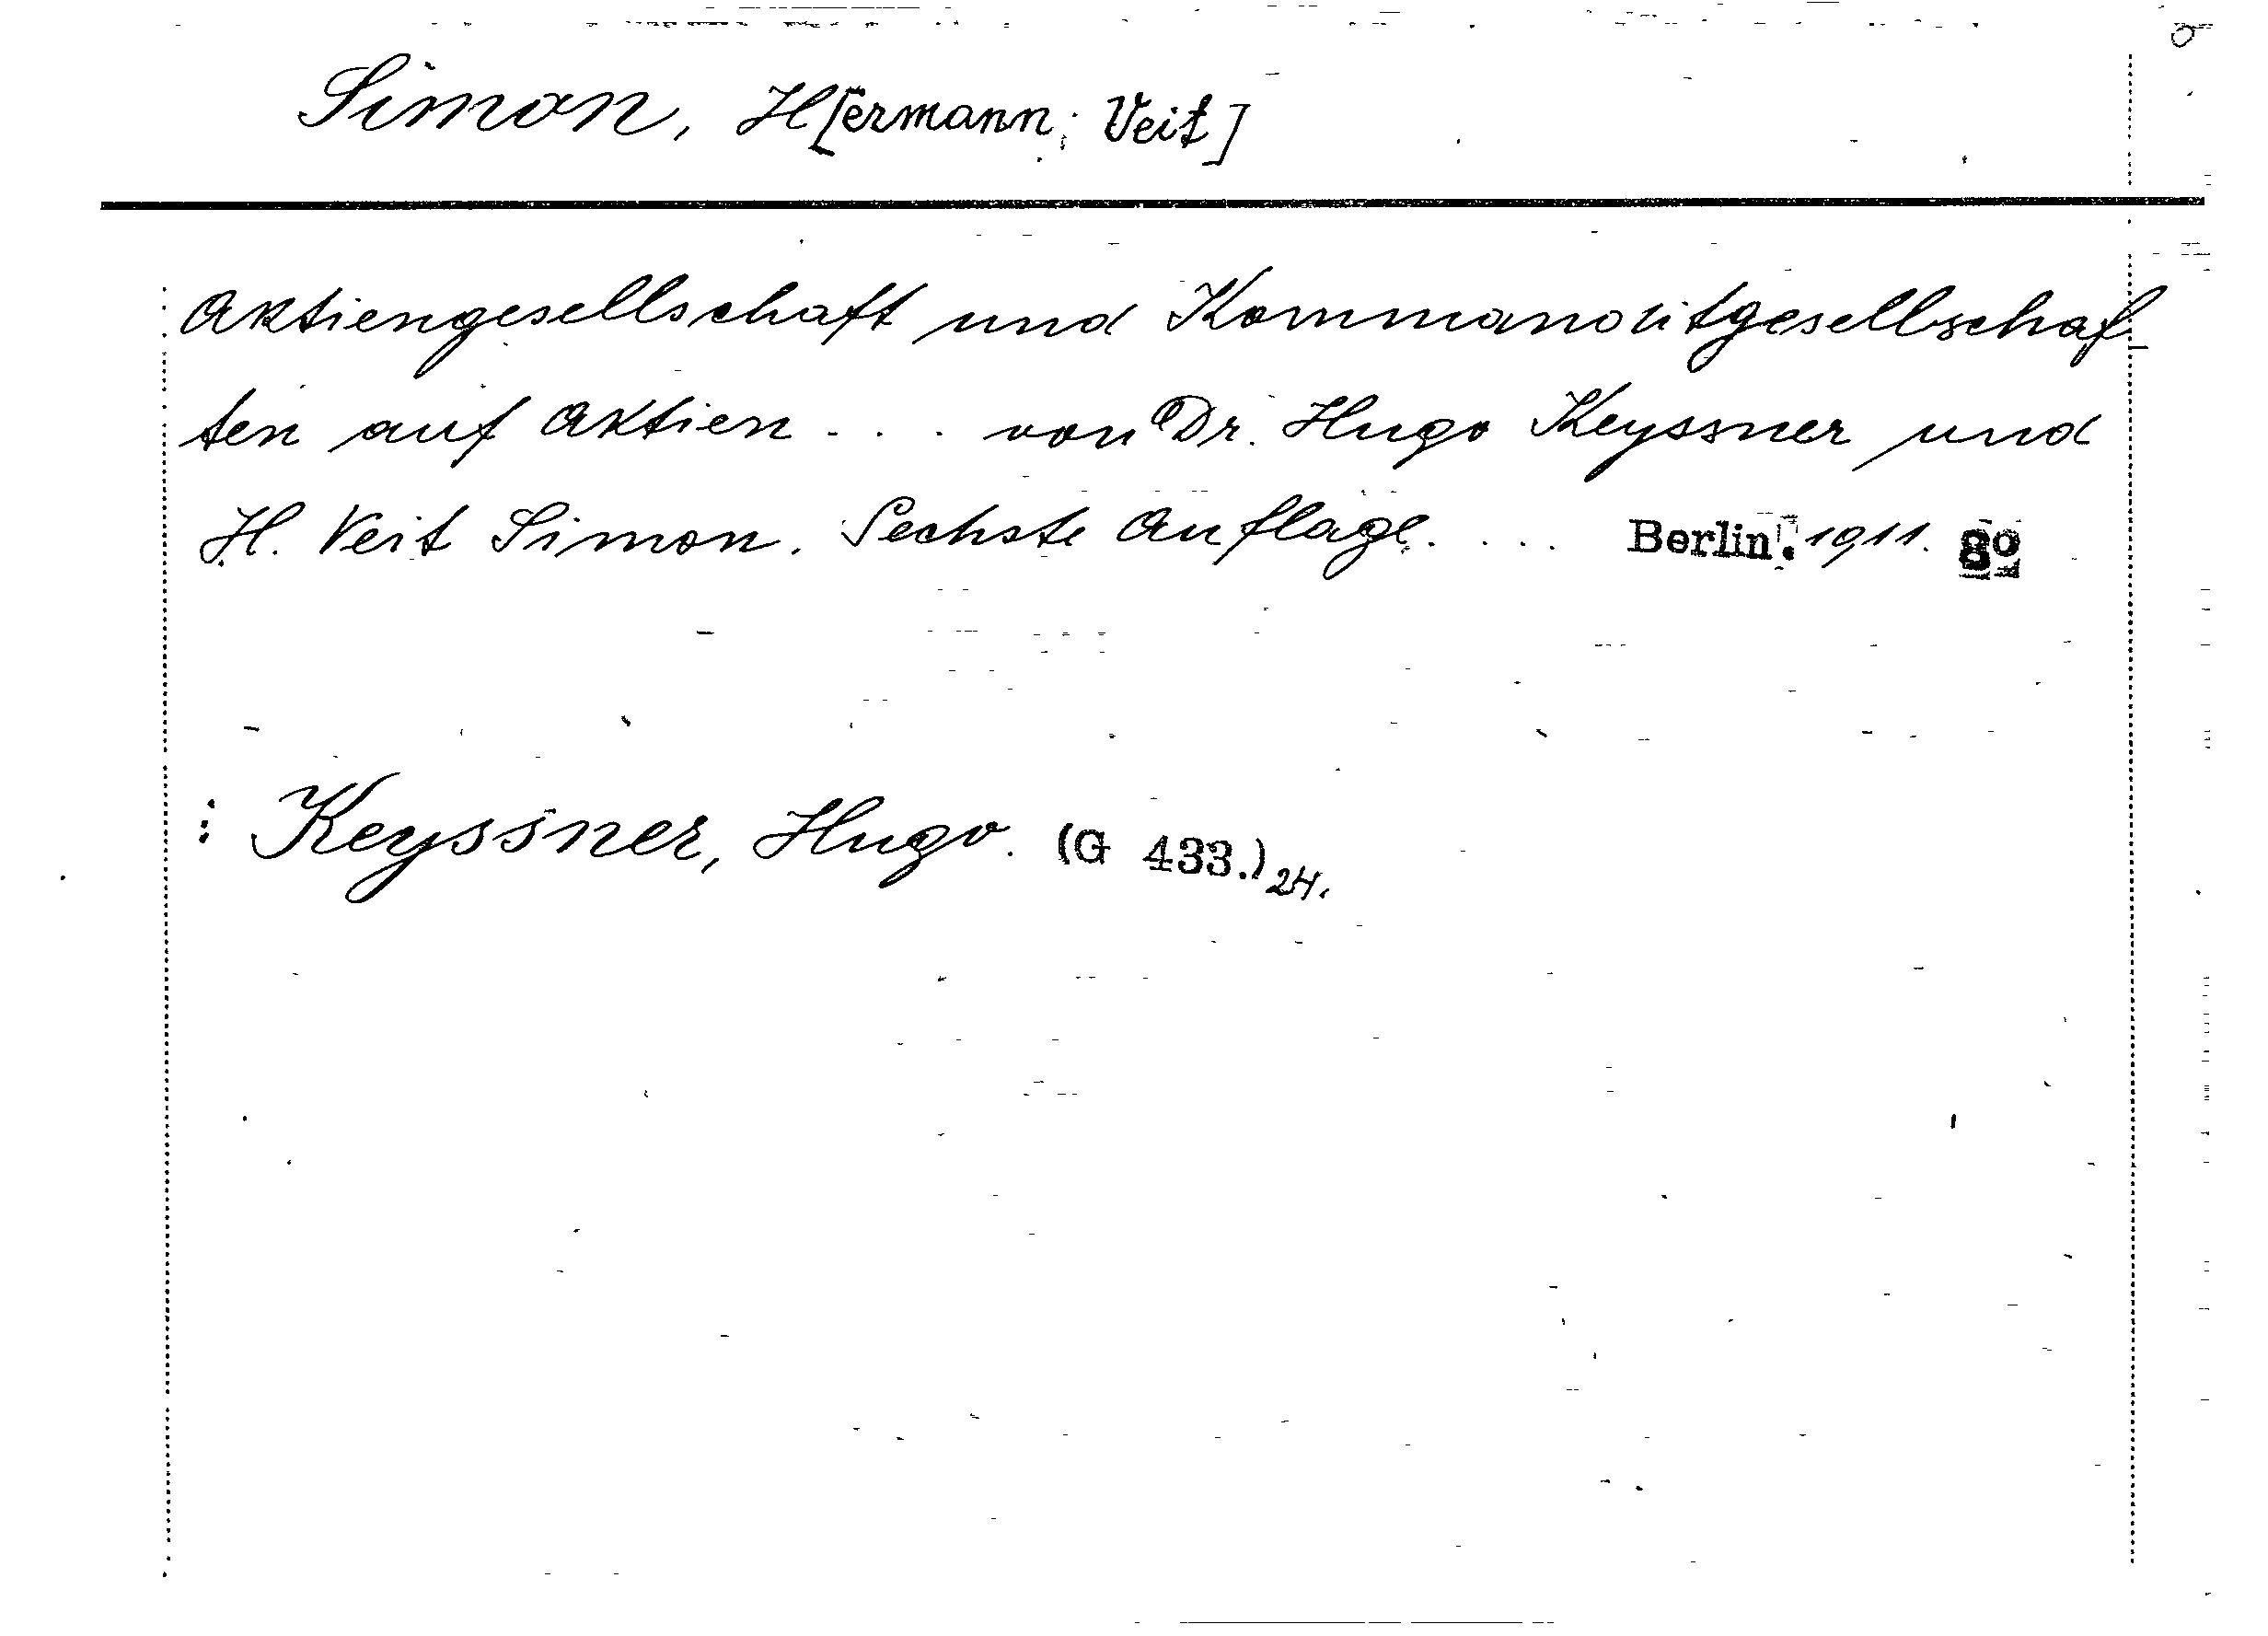 Simon, H[ermann; Veit]
Aktiengesellschaft und Kommanditgesellschaf-
ten auf Aktien . . . von Dr. Hugo Keyssner und
H. Veit Simon. Sechste Auflage. . . . Berlin. 1911. 8o
: Keyssner, Hugo. (G 433.) 24.